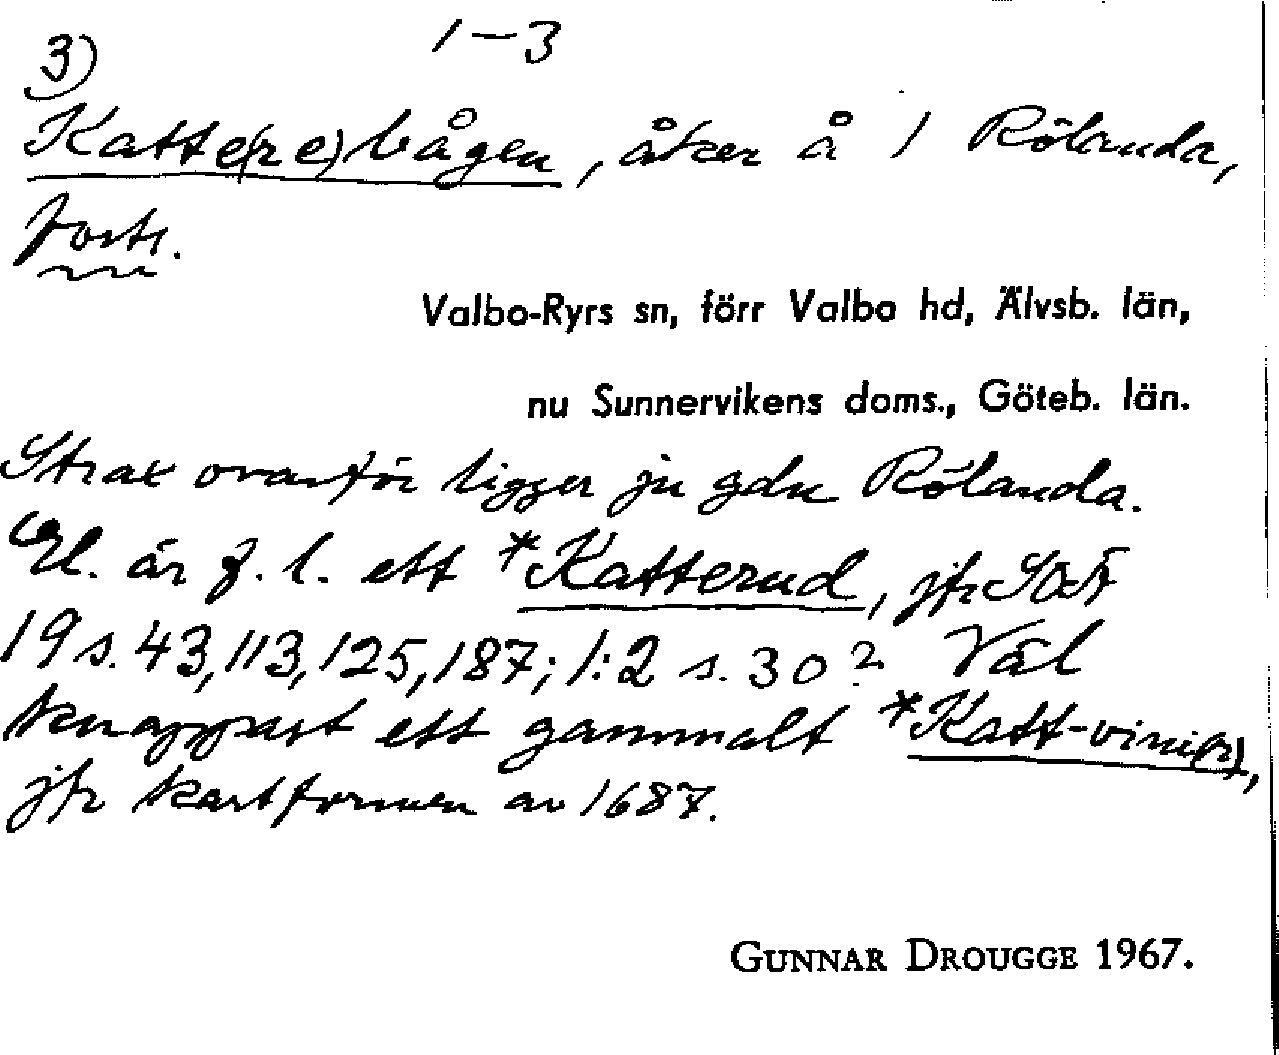 3) 1-3
Katte(re)bågen, åker å 1 Rölanda,
forts.
Valbo-Ryrs sn, förr Valbo hd, Älvsb. län,
nu Sunnervikens doms., Göteb. län.
Strax ovanför ligger ju gdn Rölanda.
El. är f. l. ett *Katterud, jfr SOÄ
19 s. 43, 113, 125, 187; 1:2 s. 30? Väl
knappast ett gammalt *Katt-vini(r),
jfr kartformen av 1687.
GUNNAR DROUGGE 1967.